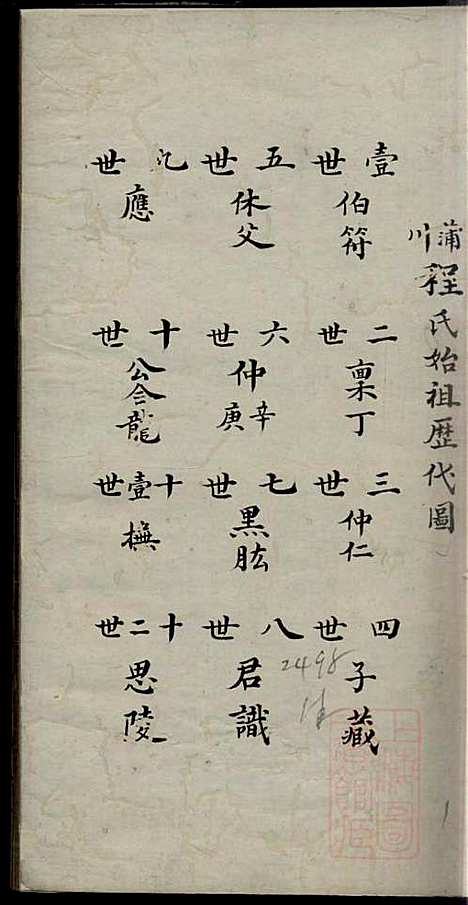 蒲川程氏始祖歷代圖
壹世 伯符
二世 稟丁
三世 仲仁
四世 子藏
五世 休父
六世 仲辛庚
七世 黑肱
八世 君識
九世 應
十世 公會龍
十壹世 撫
十二世 思陵
2498